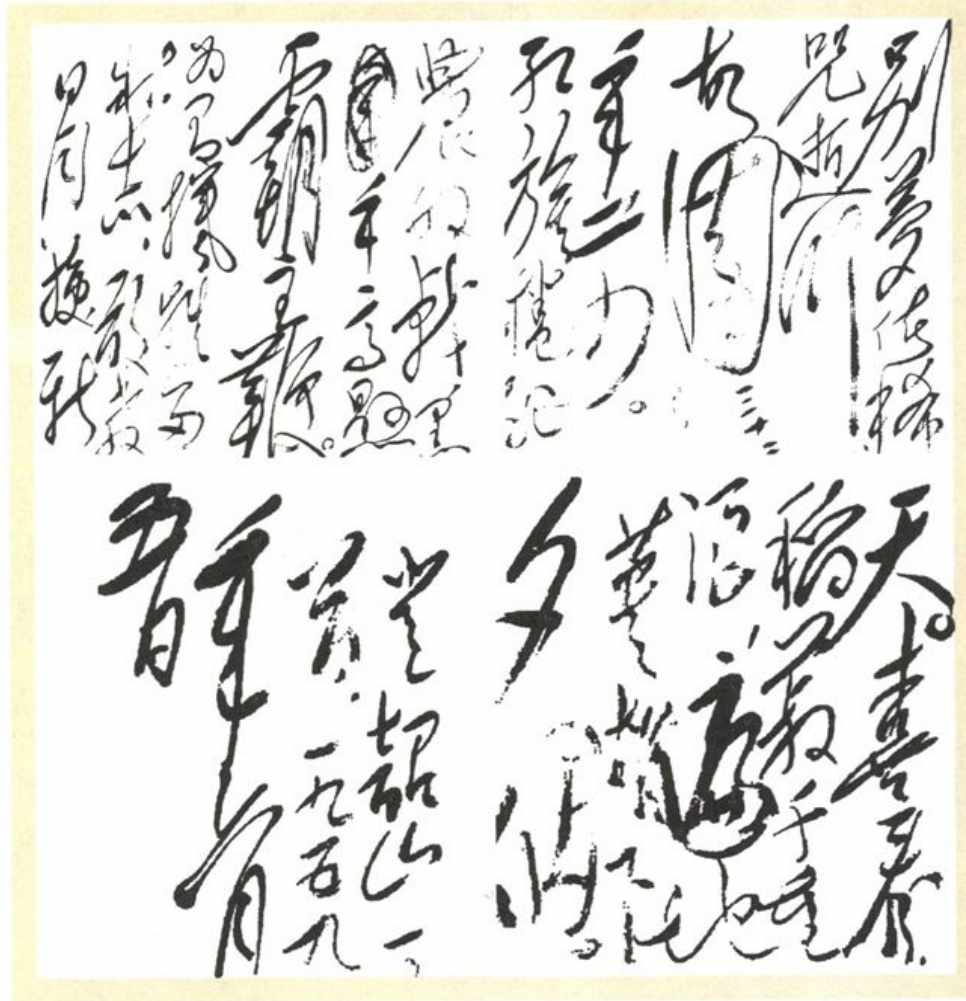 别梦依稀
咒逝川
故园三十二
年前。
红旗卷起
农奴戟黑
手高悬
霸主鞭。
为有牺牲多
壮志，敢教
日月换新
天。喜看
稻菽千重
浪，遍地
英雄下
夕烟。
登韶山一
首。一九五九
年六月
五日